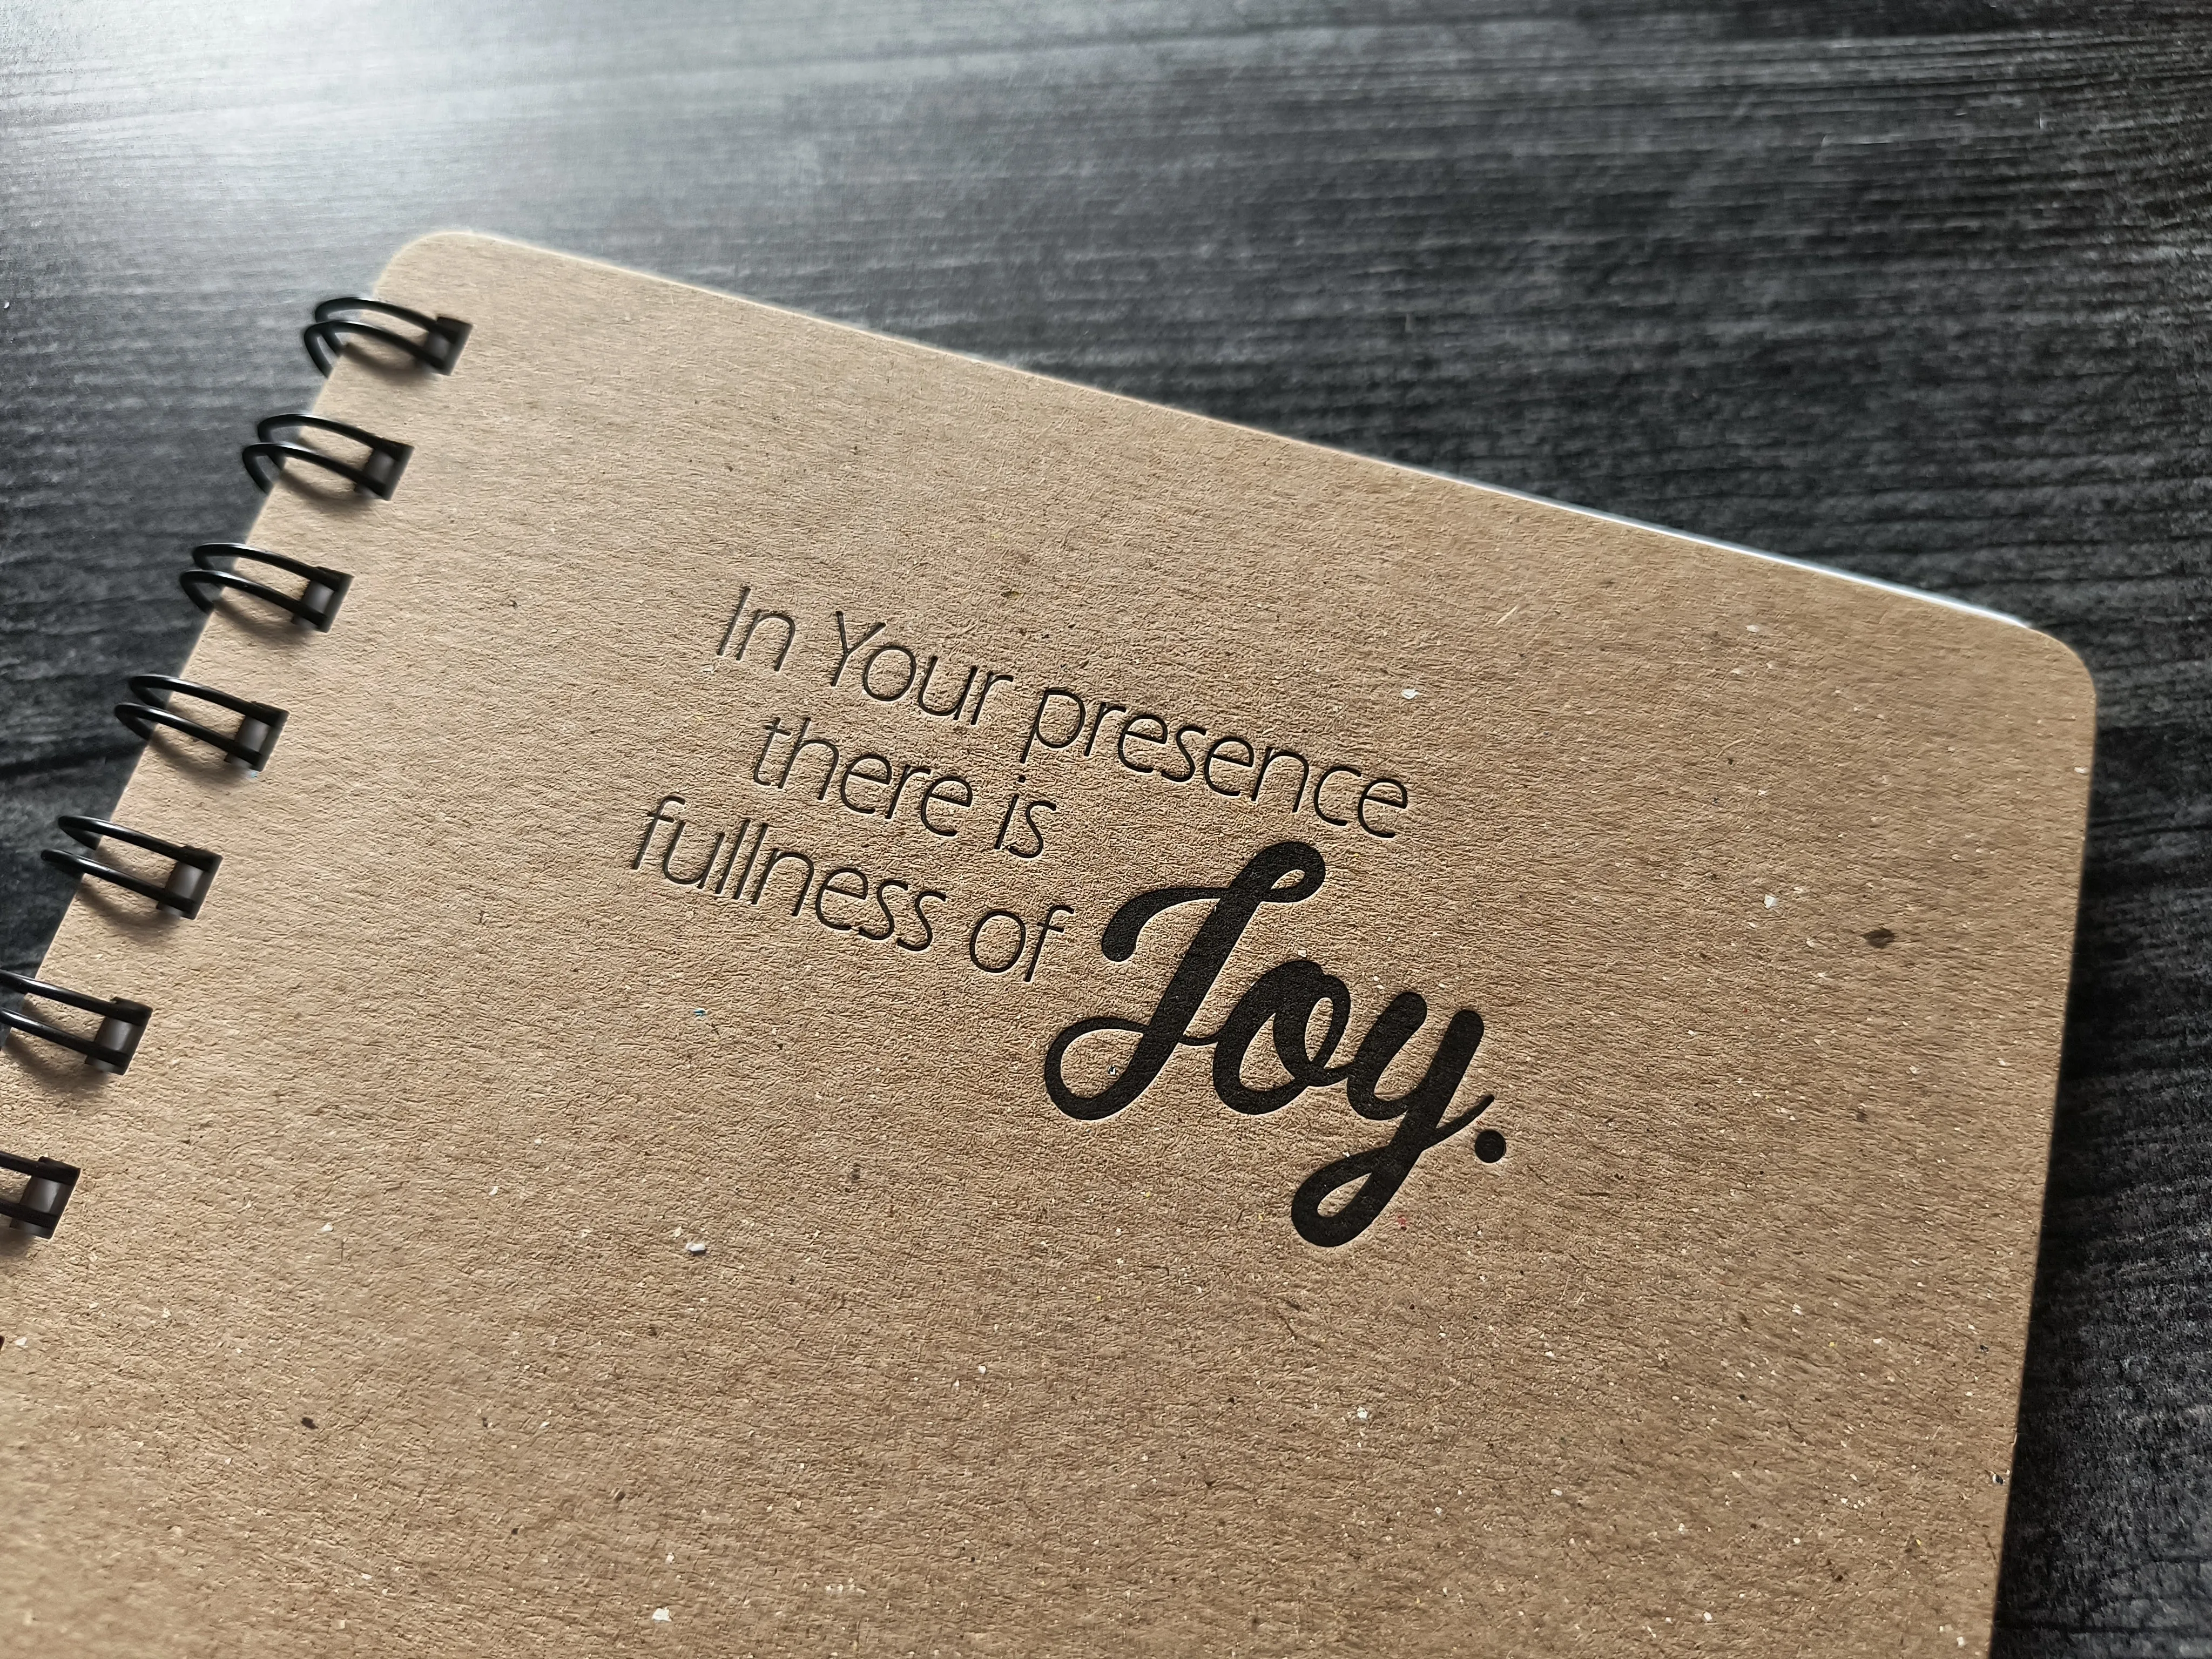 In Your presence
there is
fullness of Joy.